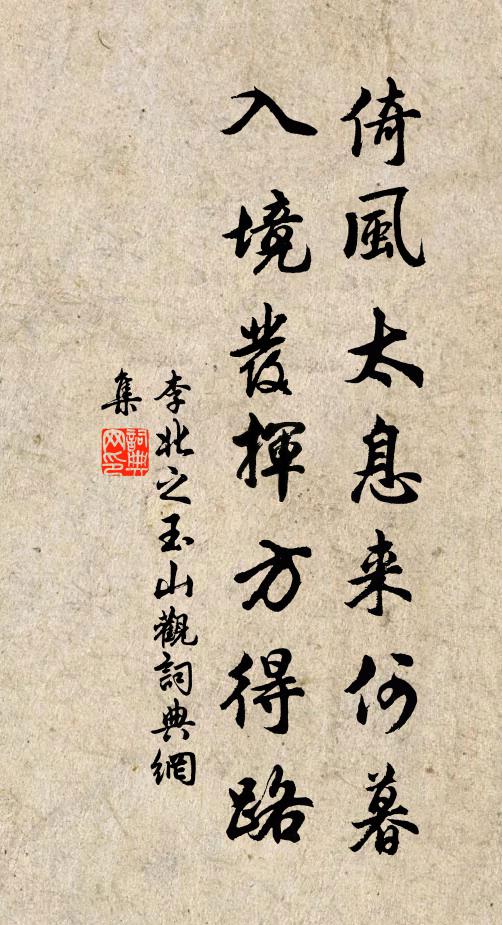 倚風太息来何暮
入境發揮方得路
李壯之玉山觀詞典網
集
詞典
网印